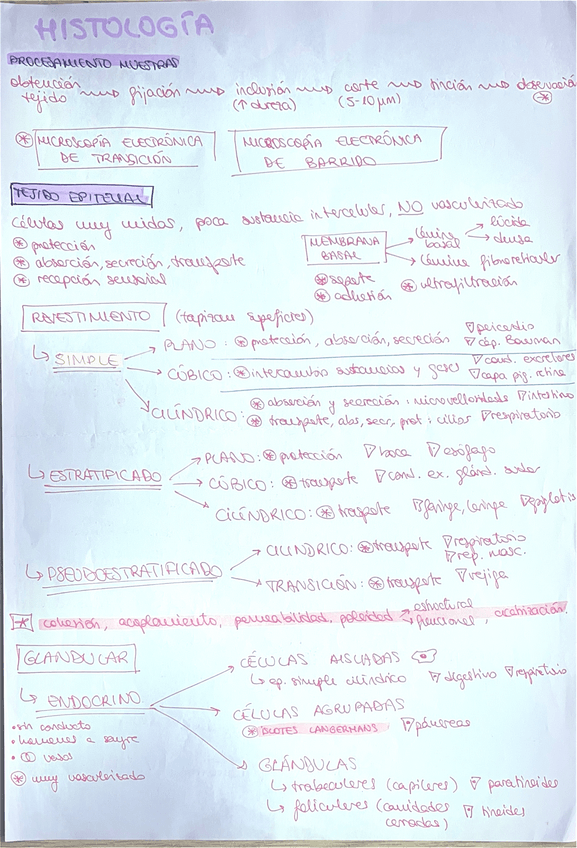 HISTOLOGÍA
PROCESAMIENTO MUESTRAS
obtención tejido fijación inclusión (↑ dureza) corte (5-10 μm) tinción observación
MICROSCOPÍA ELECTRÓNICA DE TRANSICIÓN
MICROSCOPÍA ELECTRÓNICA DE BARRIDO
TEJIDO EPITELIAL
Células muy unidas, poca sustancia intercelular, NO vascularizado
protección
absorción, secreción, transporte
recepción sensorial
MEMBRANA BASAL
lámina basal → lúcida
→ densa
lámina fibroreticular
soporte
adhesión
ultrafiltración
REVESTIMIENTO (tapizan superficies)
SIMPLE
PLANO: protección, absorción, secreción pericardio
cáp. Bowman
CÚBICO: intercambio sustancias y gases cond. excretores
capa pig. retina
CILÍNDRICO: absorción y secreción: microvellosidades intestino
transporte, abs, secr, prot: cilios respiratorio
ESTRATIFICADO
PLANO: protección boca esófago
CÚBICO: transporte cond. ex. glánd. sudor
CILÍNDRICO: transporte faringe, laringe epiglotis
PSEUDOESTRATIFICADO
CILINDRICO: transporte respiratorio
rep. masc.
TRANSICIÓN: transporte vejiga
cohesión, acoplamiento, permeabilidad, polaridad → estructural
→ funciones, cicatrización.
GLANDULAR
ENDOCRINO
sin conducto
hormonas a sangre
vasos
muy vascularizado
CÉLULAS AISLADAS
ep. simple cilíndrico digestivo respiratorio
CÉLULAS AGRUPADAS
ISLOTES LANGERHANS páncreas
GLÁNDULAS
trabeculares (capilares) paratiroides
foliculares (cavidades cerradas) tiroides